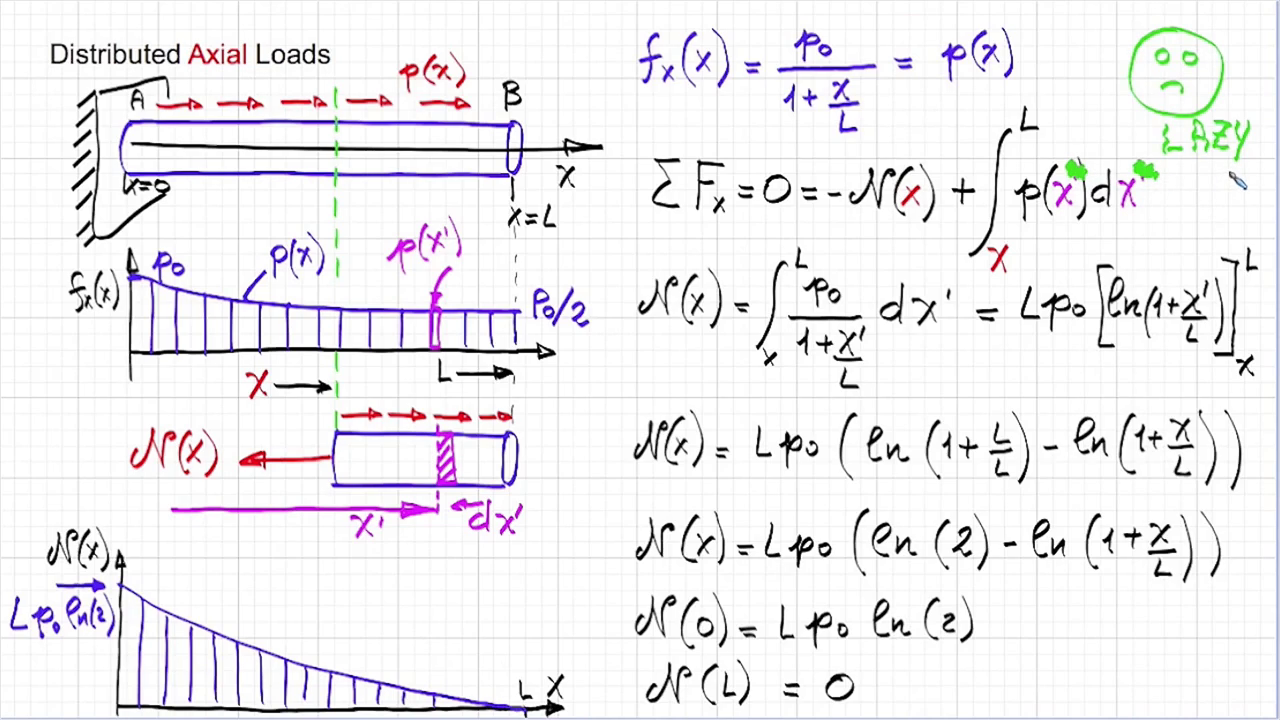 Distributed Axial Loads
p(x)
A
B
x
x=0
x=L
fx(x)
p0
p(x)
p(x')
p0/2
x
L
N(x)
x'
dx'
N(x)
L p0 ln(2)
L x
fx(x) = p0 / (1 + x/L) = p(x)
LAZY
ΣFx = 0 = -N(x) + ∫_x^L p(x')dx'
N(x) = ∫_x^L p0 / (1 + x'/L) dx' = L p0 [ln(1 + x'/L)]_x^L
N(x) = L p0 (ln(1 + L/L) - ln(1 + x/L))
N(x) = L p0 (ln(2) - ln(1 + x/L))
N(0) = L p0 ln(2)
N(L) = 0